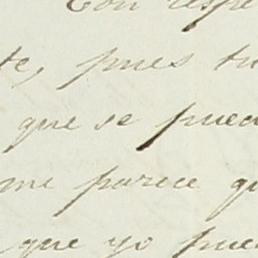 Con respe
te, pues tu
que se pued
me parece qu
que yo pue